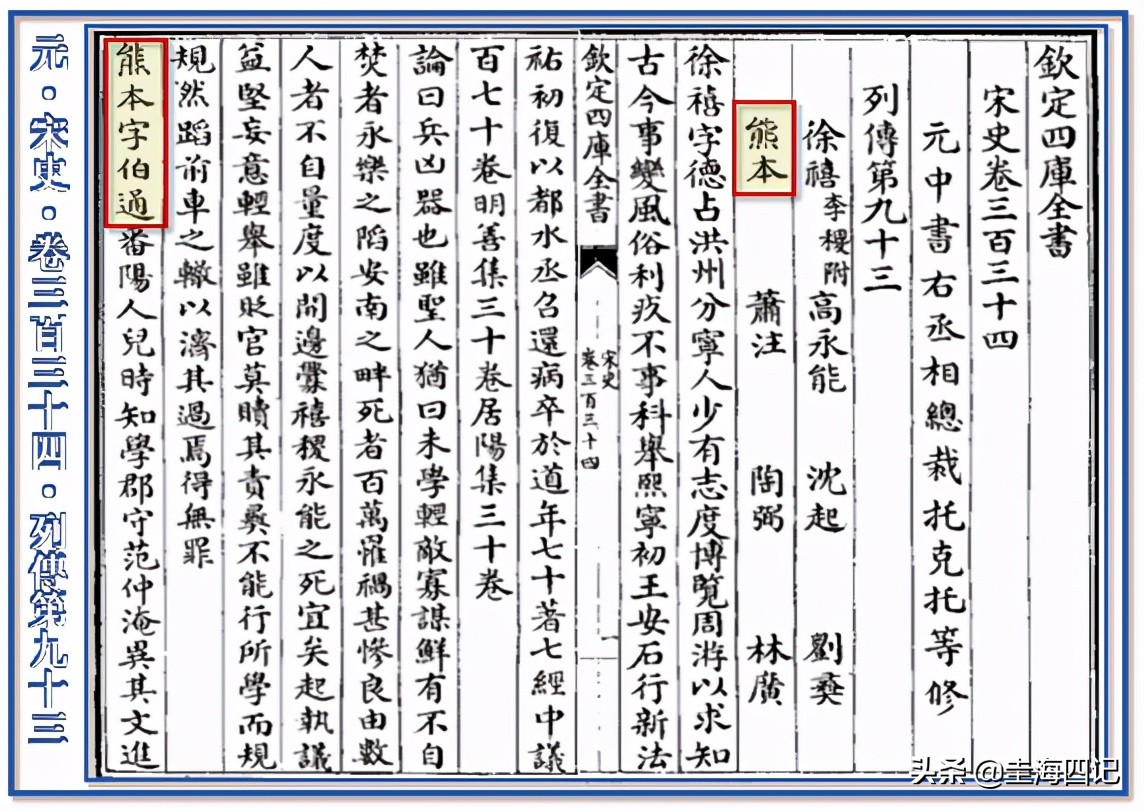 欽定四庫全書
宋史卷三百三十四
元中書右丞相總裁托克托等修
列傳第九十三
徐禧 李稷附 高永能 沈起 劉彝
熊本 蕭注 陶弼 林廣
徐禧字德占洪州分寧人少有志度博覽周游以求知
古今事變風俗利疚不事科舉熙寧初王安石行新法
欽定四庫全書
宋史
卷三百三十四
一
祐初復以都水丞召還病卒於道年七十著七經中議
百七十卷明善集三十卷居陽集三十卷
論曰兵凶器也雖聖人猶曰未學輕敵寡謀鮮有不自
焚者永樂之陷安南之畔死者百萬罹禍甚慘良由數
人者不自量度以開邊釁禧稷永能之死宜矣起執議
益堅妄意輕舉雖貶官莫贖其責彞不能行所學而規
規然蹈前車之轍以濟其過焉得無罪
熊本字伯通番陽人兒時知學郡守范仲淹異其文進
元·宋史·卷三百三十四·列傳第九十三
头条 @圭海四记